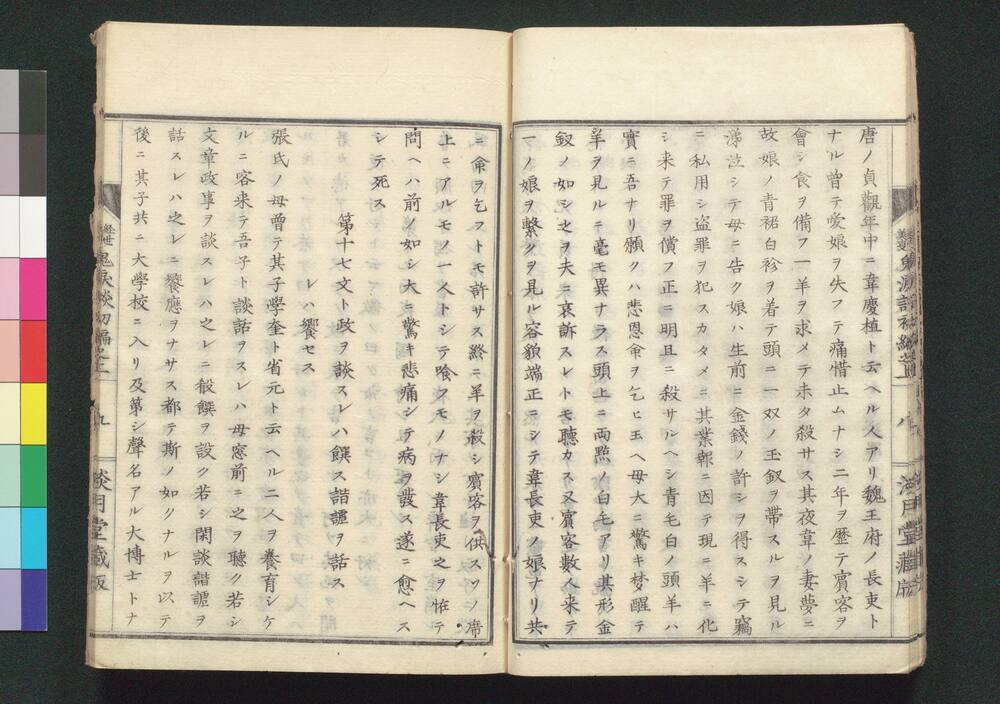 唐ノ貞觀年中ニ韋慶植ト云ヘル人アリ魏王府ノ長吏ト
ナル曾テ愛娘ヲ失フテ痛惜止ムナシ二年ヲ歴テ賓客ヲ
會シ食ヲ備フ一羊ヲ求メテ未タ殺サス其夜韋ノ妻夢ニ
故娘ノ青裙白衫ヲ着テ頭ニ一双ノ玉釵ヲ帯スルヲ見ル
涕泣シテ母ニ告ク娘ハ生前ニ金錢ノ許シヲ得スシテ竊
ニ私用シ盗罪ヲ犯スカタメニ其業報ニ因テ現ニ羊ニ化
シ来テ罪ヲ償フ正ニ明旦ニ殺サルヘシ青毛白ノ頭羊ハ
實ニ吾ナリ願クハ悲恩命ヲ乞ヒ玉ヘ母大ニ驚キ梦醒テ
羊ヲ見ルニ毫モ異ナラス頭上ニ両點ノ白毛アリ其形金
釵ノ如シ之ヲ夫ニ哀訴スレトモ聴カス又賓客數人来テ
一ノ娘ヲ繋クヲ見ル容貌端正ニシテ韋長吏ノ娘ナリ共
ニ命ヲ乞フトモ許サス終ニ羊ヲ殺シ賓客ヲ供スソノ席
上ニアルモノ一人トシテ喰フモノナシ韋長吏之ヲ恠テ
問ヘハ前ノ如シ大ニ驚キ悲痛シテ病ヲ發ス遂ニ愈ヘス
シテ死ス
第十七文ト政ヲ談スレハ饌ス諧謔ヲ話ス
レハ饗セス
張氏ノ母曾テ其子學奎ト省元ト云ヘル二人ヲ養育シケ
ルニ容来テ吾子ト談話ヲスレハ母窓前ニ之ヲ聴ク若シ
文章政事ヲ談スレハ之レニ殽饌ヲ設ク若シ閑談諧謔ヲ
話スレハ之レニ饗應ヲナサス都テ斯ノ如クナルヲ以テ
後ニ其子共ニ大學校ニ入リ及第シ聲名アル大博士トナ
九